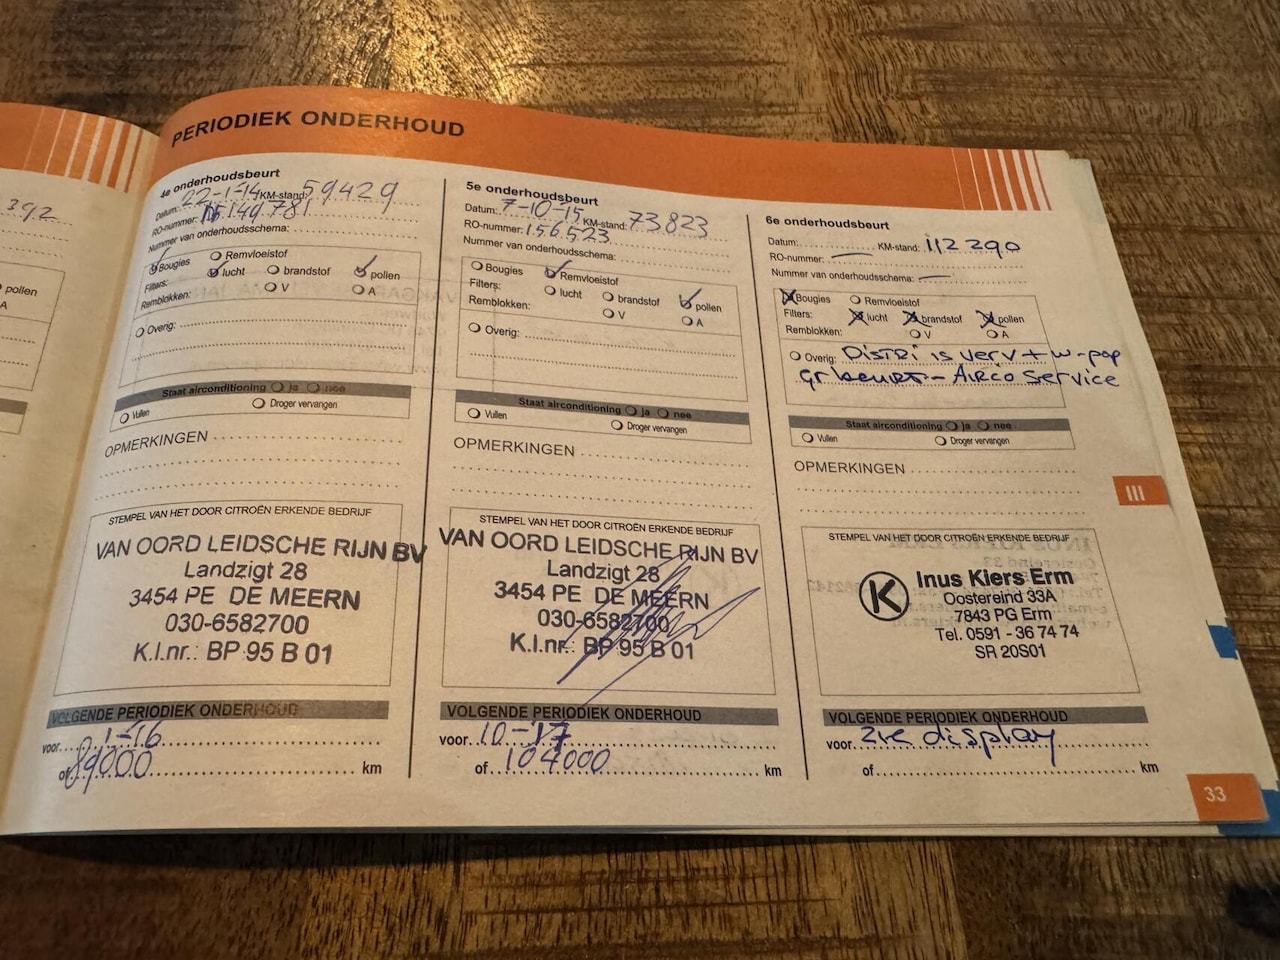 PERIODIEK ONDERHOUD
392
pollen
A
4e onderhoudsbeurt
Datum: 22-1-14 KM-stand: 59429
RO-nummer: 149781
Nummer van onderhoudsschema:
Bougies Remvloeistof
Filters: lucht brandstof pollen
Remblokken: V A
Overig:
Staat airconditioning ja nee
Vullen Droger vervangen
OPMERKINGEN
STEMPEL VAN HET DOOR CITROËN ERKENDE BEDRIJF
VAN OORD LEIDSCHE RIJN BV
Landzigt 28
3454 PE DE MEERN
030-6582700
K.I.nr.: BP 95 B 01
VOLGENDE PERIODIEK ONDERHOUD
voor 1-16
of 89000 km
5e onderhoudsbeurt
Datum: 7-10-15 KM-stand: 73823
RO-nummer: 156523
Nummer van onderhoudsschema:
Bougies Remvloeistof
Filters: lucht brandstof pollen
Remblokken: V A
Overig:
Staat airconditioning ja nee
Vullen Droger vervangen
OPMERKINGEN
STEMPEL VAN HET DOOR CITROËN ERKENDE BEDRIJF
VAN OORD LEIDSCHE RIJN BV
Landzigt 28
3454 PE DE MEERN
030-6582700
K.I.nr.: BP 95 B 01
VOLGENDE PERIODIEK ONDERHOUD
voor 10-'17
of 104000 km
6e onderhoudsbeurt
Datum: KM-stand: 112290
RO-nummer: —
Nummer van onderhoudsschema: —
Bougies Remvloeistof
Filters: lucht brandstof pollen
Remblokken: V A
Overig: Distri is verv + w-pop
gr beurt - Airco Service
Staat airconditioning ja nee
Vullen Droger vervangen
OPMERKINGEN
STEMPEL VAN HET DOOR CITROËN ERKENDE BEDRIJF
K
Inus Klers Erm
Oostereind 33A
7843 PG Erm
Tel. 0591 - 36 74 74
SR 20S01
VOLGENDE PERIODIEK ONDERHOUD
voor zie display
of km
III
33